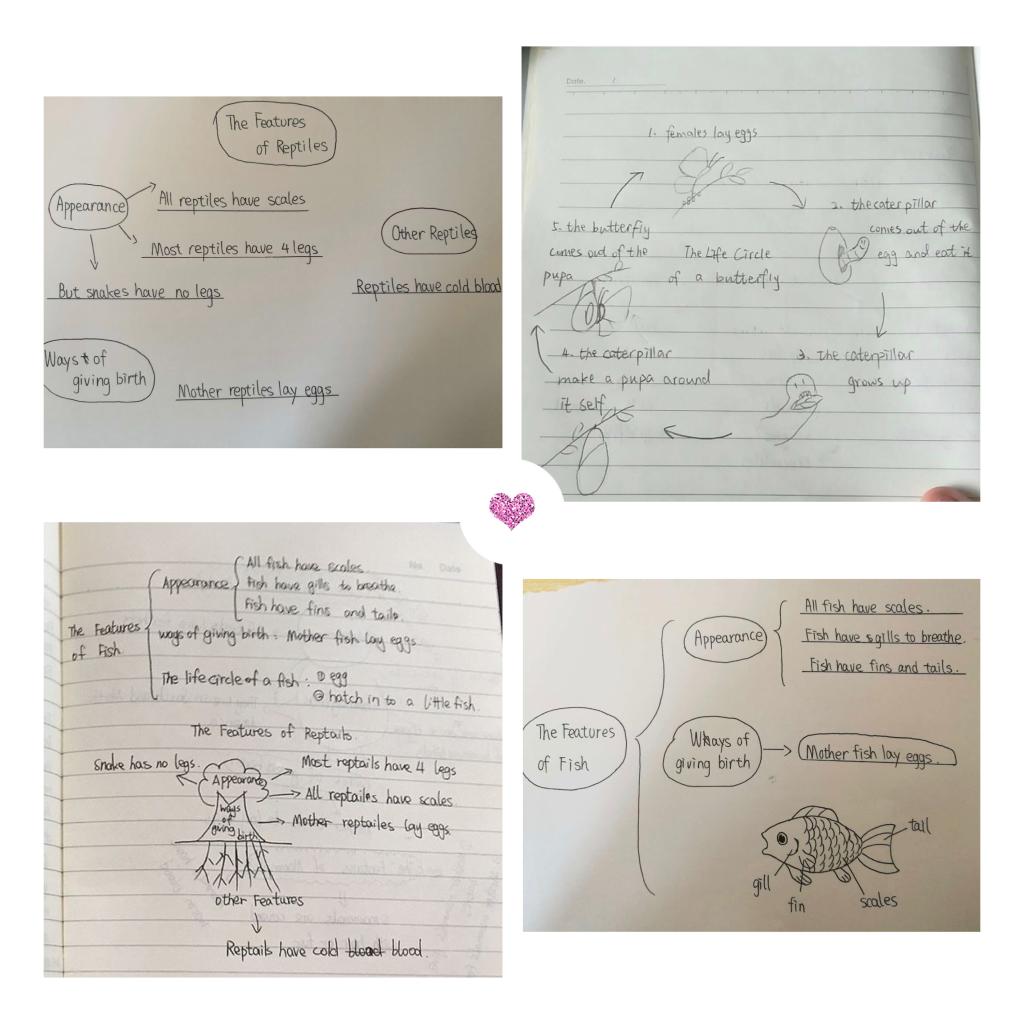 The Features
of Reptiles
Appearance
All reptiles have scales
Most reptiles have 4 legs
But snakes have no legs
Other Reptiles
Reptiles have cold blood
Ways of
giving birth
Mother reptiles lay eggs
Date.
1. females lay eggs
2. the caterpillar
comes out of the
egg and eat it
3. The caterpillar
grows up
4. the caterpillar
make a pupa around
it self
5. the butterfly
comes out of the
pupa
The Life Circle
of a butterfly
No. Date
The Features
of Fish
Appearance
All fish have scales.
Fish have gills to breathe.
Fish have fins and tails.
ways of giving birth: Mother fish lay eggs.
The life circle of a fish: ① egg
② hatch in to a little fish.
The Features of Reptails.
Snake has no legs.
Appearance
Most reptails have 4 legs
All reptailes have scales
ways
of
giving birth
Mother reptailes lay eggs.
other Features
Reptails have cold blood.
The Features
of Fish
Appearance
All fish have scales.
Fish have gills to breathe.
Fish have fins and tails.
Ways of
giving birth
Mother fish lay eggs.
tail
gill
fin
scales